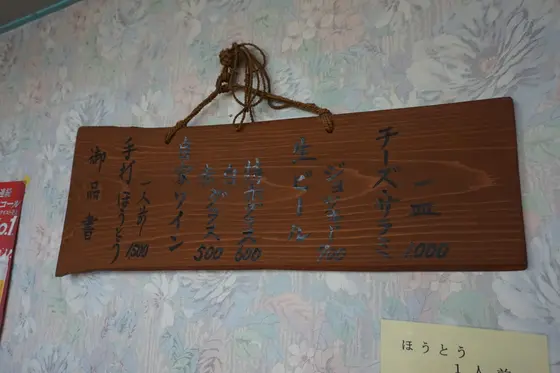 御品書
手打ほうとう
一人前 1500
自家ワイン
グラス 500
600
生ビール
ジョッキ
チーズ・サラミ
一皿 1000
コール
o.1
ほうとう
1人前